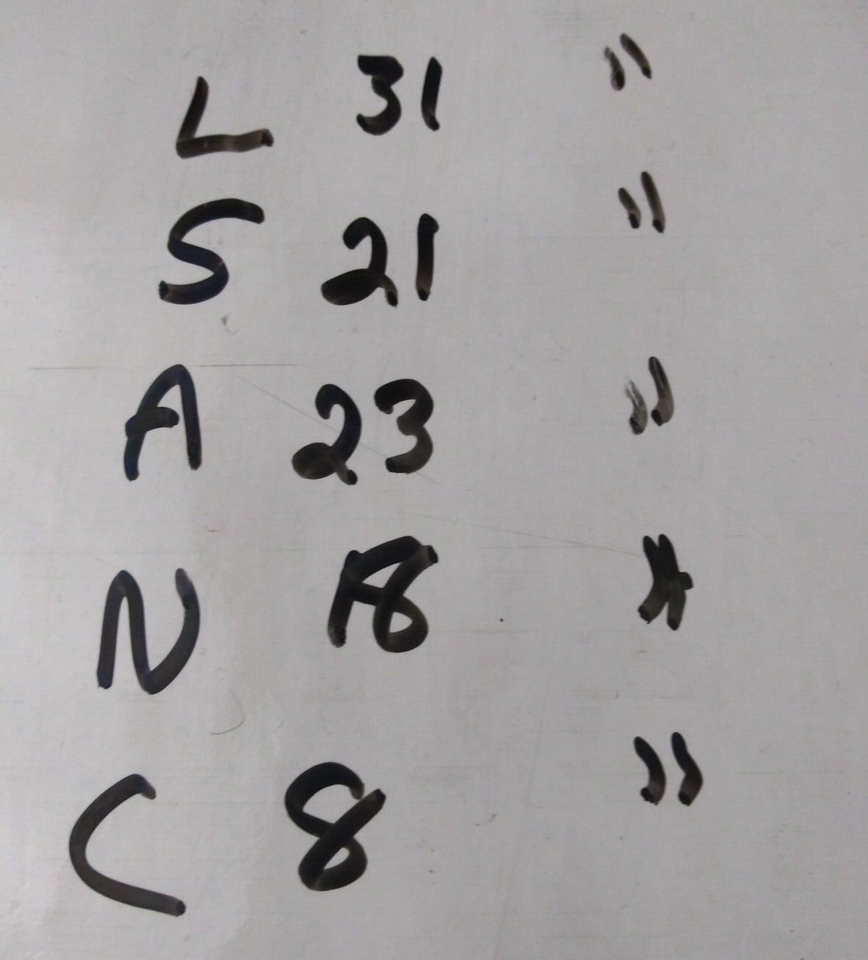 L 31 "
S 21 "
A 23 "
N 18 "
C 8 "